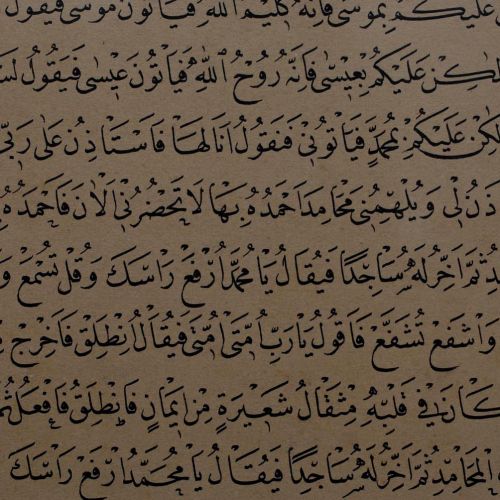 عليكم بموسى فإنه كليم الله فيأتون موسى فيقول
لكن عليكم بعيسى فإنه روح الله فيأتون عيسى فيقول لس
لكن عليكم بمحمد فيأتوني فنقول أنا لها فاستأذن على ربي
ذن لي ويلهمني محامد أحمده بها لا تحضرني الآن فأحمده
ثم أخر له ساجدا فيقال يا محمد ارفع راسك وقل تسمع و
واشفع تشفع فاقول يا رب أمتي أمتي فيقال انطلق فاخرج
كان في قلبه مثقال شعيرة من إيمان فانطلق فافعل ثم
المحامد ثم أخر له ساجدا فيقال يا محمد ارفع راسك